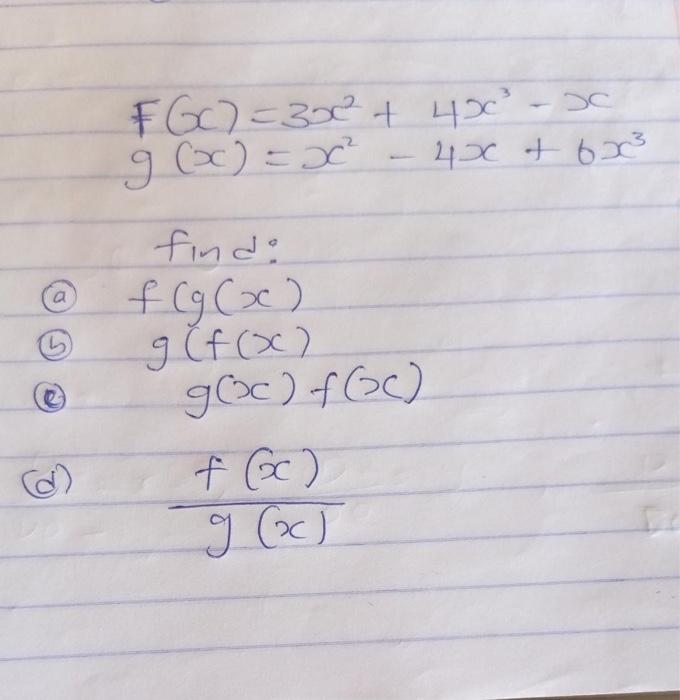 F(x) = 3x² + 4x³ - x
g(x) = x² - 4x + 6x³
find:
(a) f(g(x)
(b) g(f(x)
(c) g(x) f(x)
(d) f(x)
g(x)